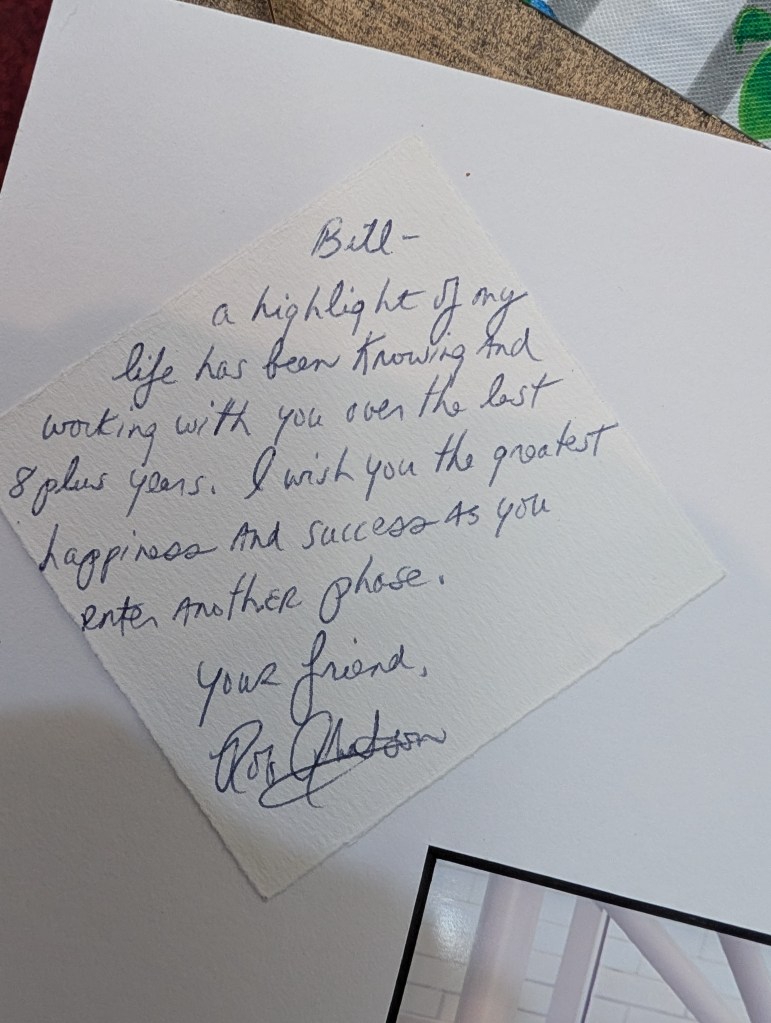 Bill-
a highlight of my
life has been Knowing And
working with you over the last
8 plus years. I wish you the greatest
happiness And success As you
enter ANOTHER phase.
your friend,